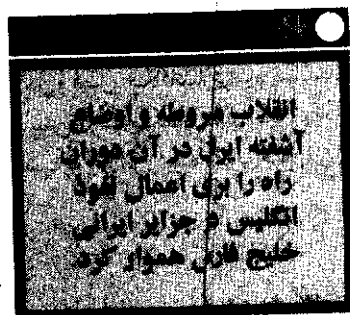 انقلاب مشروطه و اوضاع
آشفته ایران در آن دوران
راه را برای اعمال نفوذ
انگلیس در جزایر ایرانی
خلیج فارس هموار کرد.